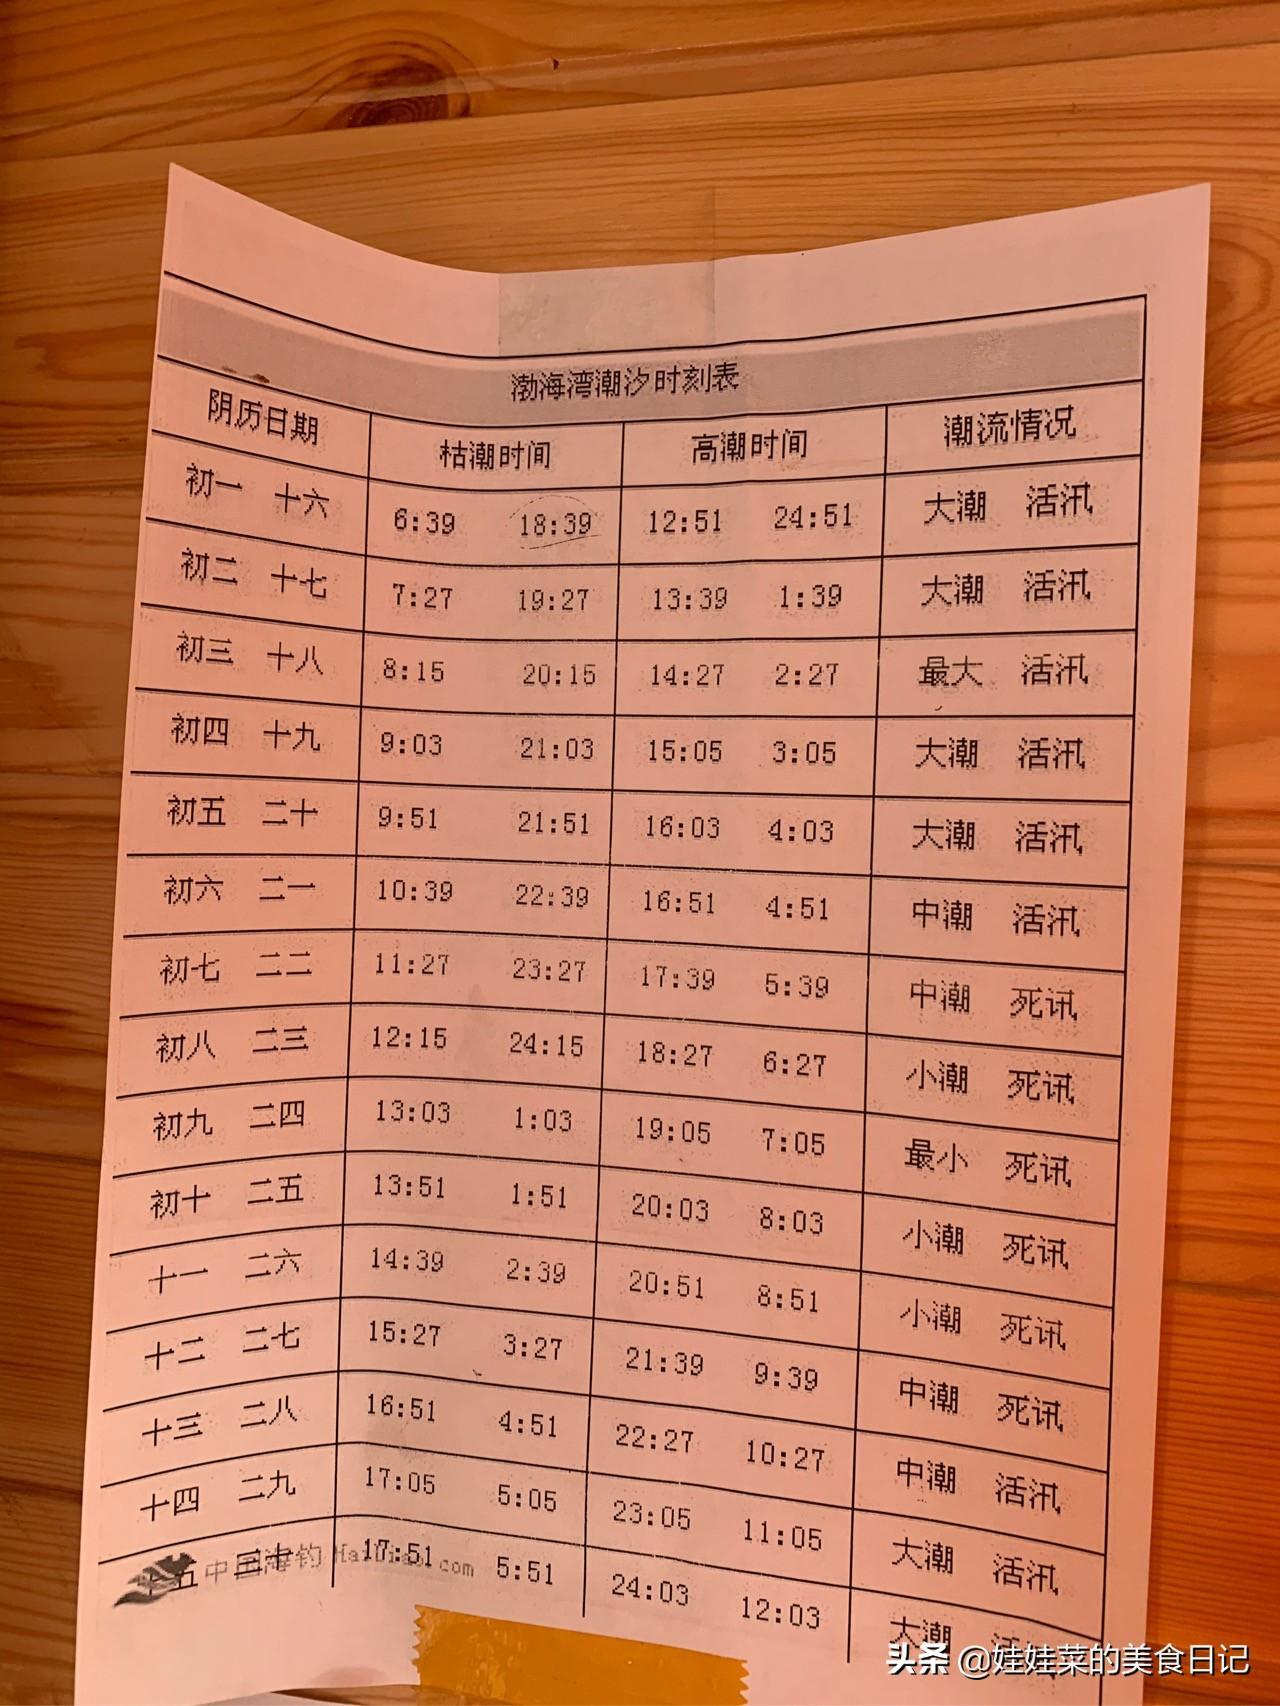 渤海湾潮汐时刻表
阴历日期 枯潮时间 高潮时间 潮流情况
初一 十六 6:39 18:39 12:51 24:51 大潮 活汛
初二 十七 7:27 19:27 13:39 1:39 大潮 活汛
初三 十八 8:15 20:15 14:27 2:27 最大 活汛
初四 十九 9:03 21:03 15:05 3:05 大潮 活汛
初五 二十 9:51 21:51 16:03 4:03 大潮 活汛
初六 二一 10:39 22:39 16:51 4:51 中潮 活汛
初七 二二 11:27 23:27 17:39 5:39 中潮 死讯
初八 二三 12:15 24:15 18:27 6:27 小潮 死讯
初九 二四 13:03 1:03 19:05 7:05 最小 死讯
初十 二五 13:51 1:51 20:03 8:03 小潮 死讯
十一 二六 14:39 2:39 20:51 8:51 小潮 死讯
十二 二七 15:27 3:27 21:39 9:39 中潮 死讯
十三 二八 16:51 4:51 22:27 10:27 中潮 活汛
十四 二九 17:05 5:05 23:05 11:05 大潮 活汛
十五 三十 17:51 5:51 24:03 12:03 大潮 活
中国海钓
头条 @娃娃菜的美食日记